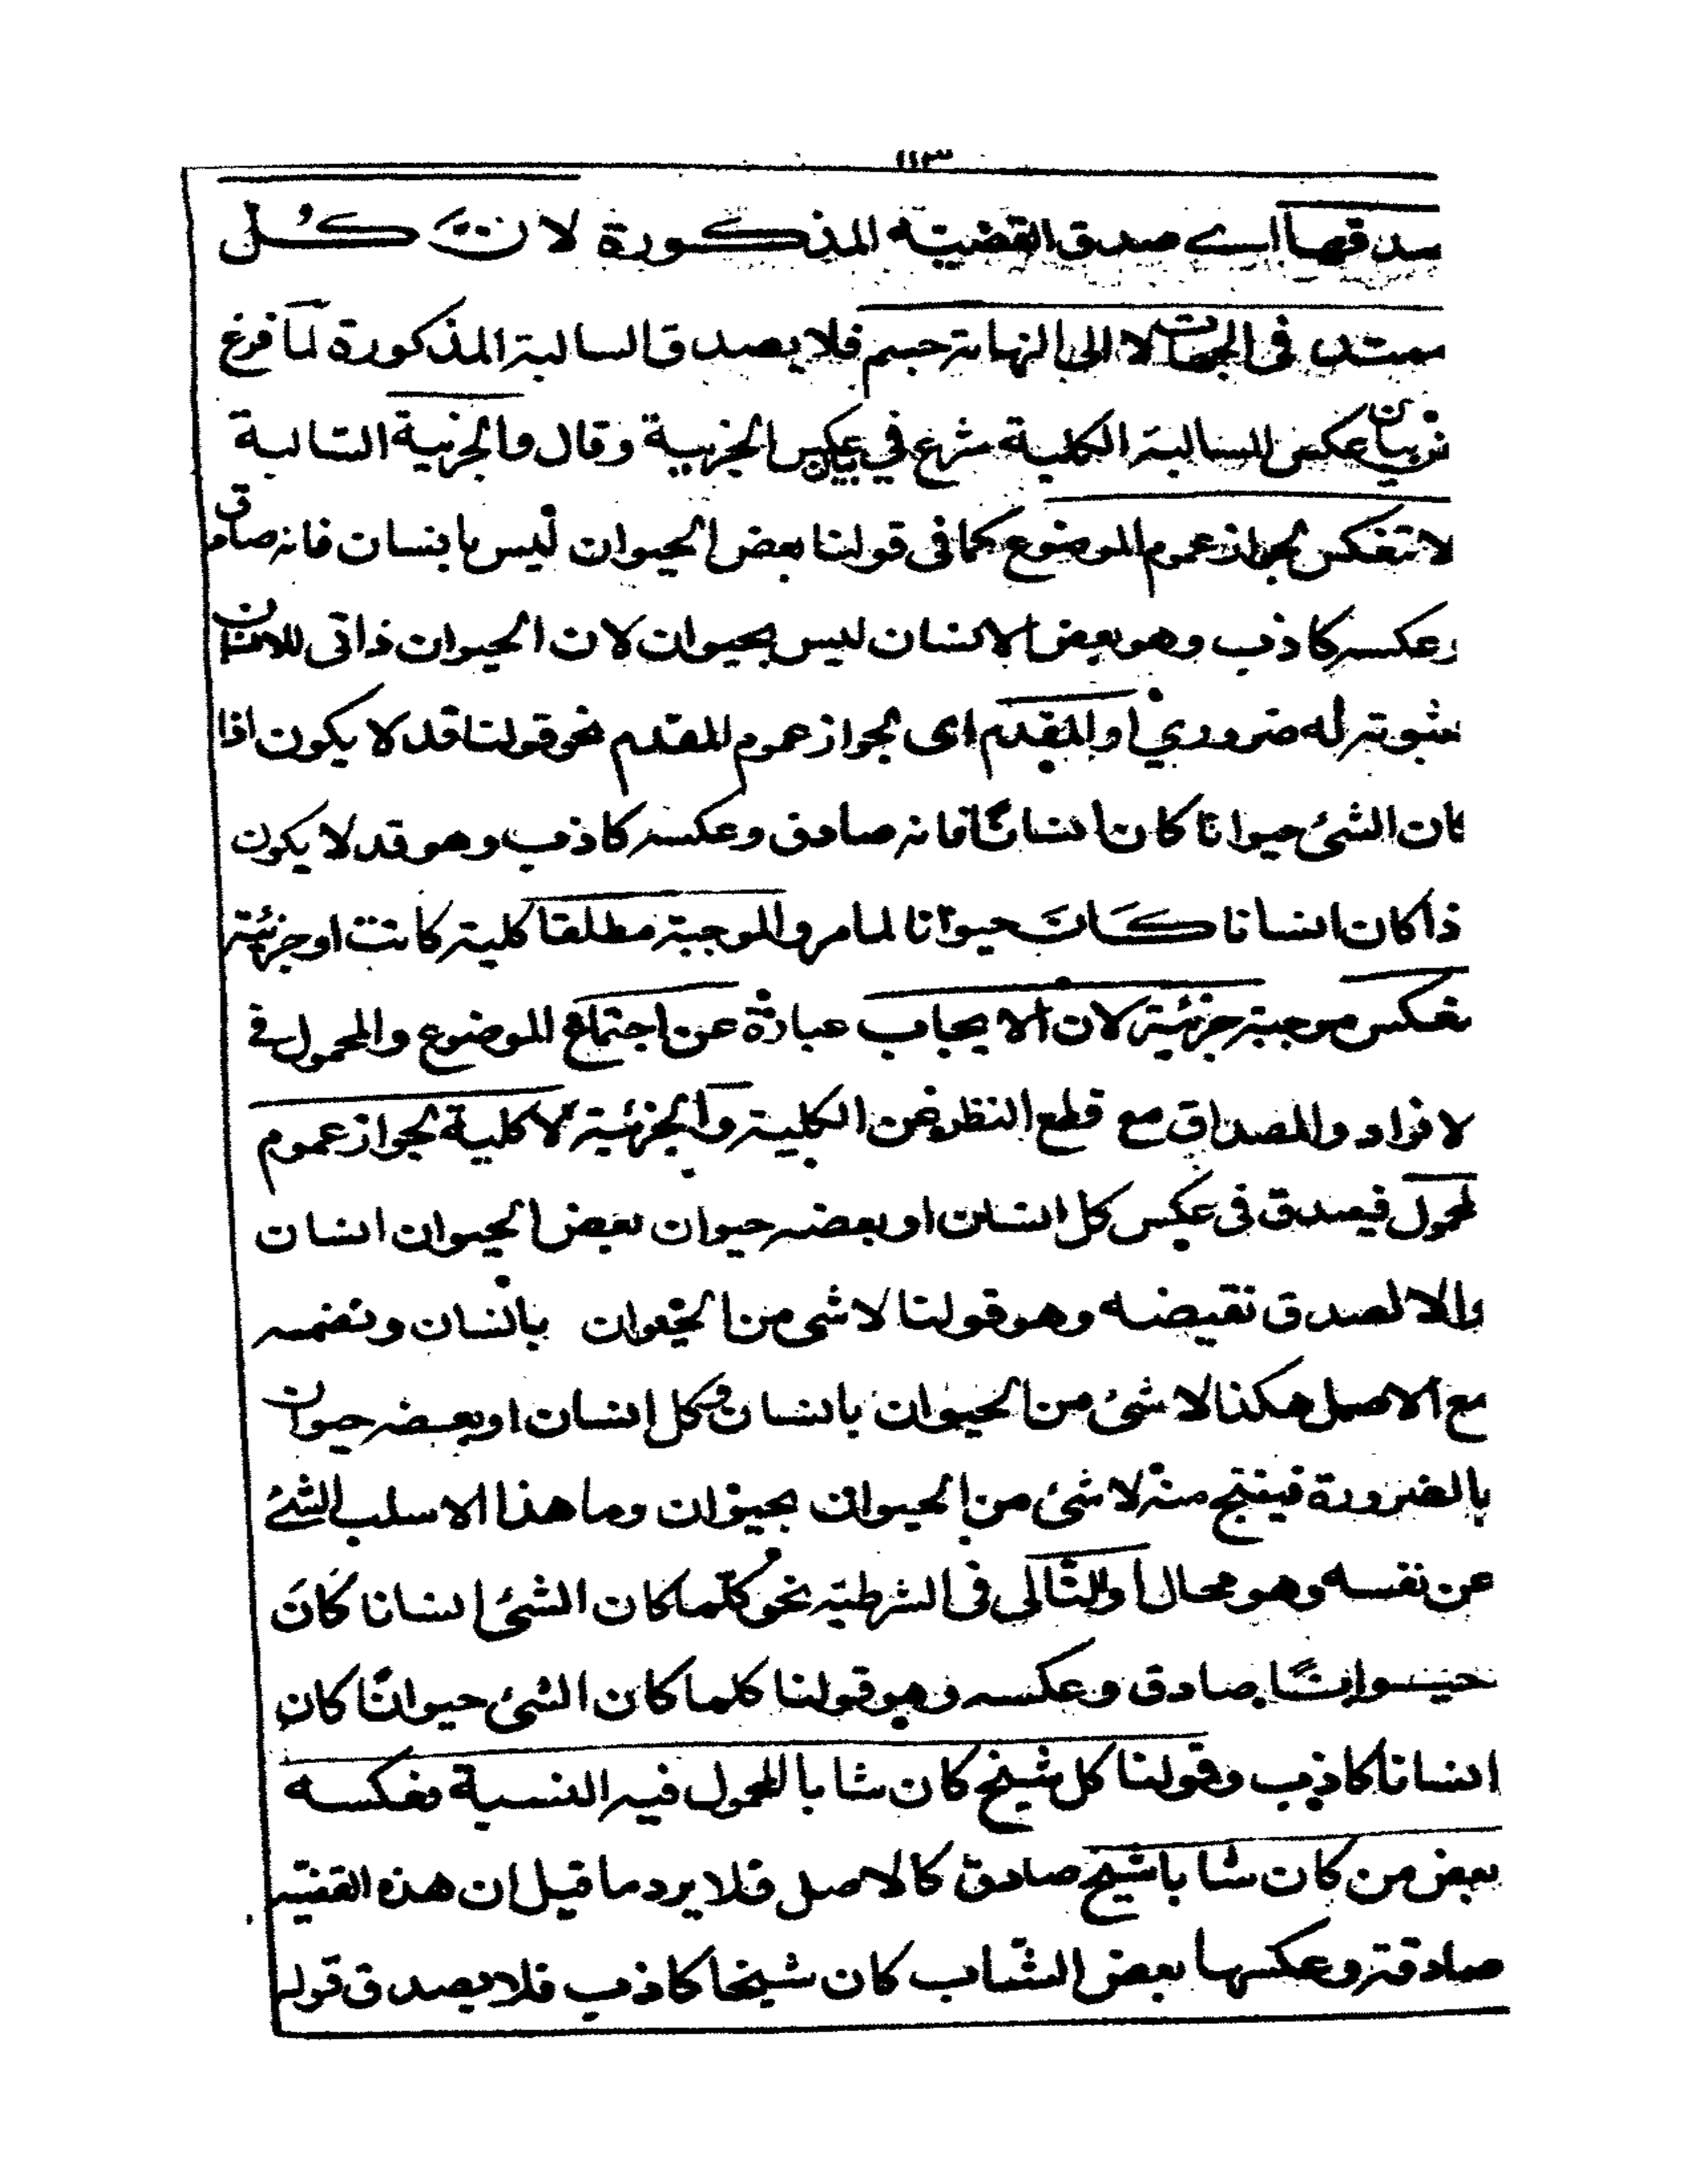 ١١٣
صدقها اے صدق القضيته المذكورة لانَّ كُل
ممتد فى الجهات لا الى النهاية جسم فلا يصدق السالبة المذكورة لمّا فرغ
من بيان عكس السالبة الكلية شرع في بيان عكس الجزئية وقال والجزئية السالبة
لا تنعكس لجواز عموم الموضوع كما فى قولنا بعض الحيوان ليس بانسان فانه صادق
وعكسه كاذب وهو بعض الانسان ليس بحيوان لان الحيوان ذاتى للانسان
ثبوته له ضروري او المقدم اى لجواز عموم المقدم نحو قولنا قد لا يكون اذا
كان الشئ حيوانا كان انسانًا فانه صادق وعكسه كاذب وهو قد لا يكون
اذا كان انسانا كَانَ حيوانا لما مر والموجبة مطلقا كلية كانت او جزئية
تنعكس موجبة جزئية لان الايجاب عبارة عن اجتماع الموضوع والمحمول فى
الافراد والمصداق مع قطع النظر عن الكلية والجزئية لا كلية لجواز عموم
المحمول فيصدق فى عكس كل انسان او بعضه حيوان بعض الحيوان انسان
والا لصدق نقيضه وهو قولنا لا شى من الحيوان بانسان ونضمه
مع الاصل هكذا لا شئ من الحيوان بانسان وكل انسان او بعضه حيوان
بالضرورة فينتج منه لا شئ من الحيوان بحيوان وما هذا الا سلب الشئ
عن نفسه وهو محال او التالي فى الشرطيّة نحو كلّما كان الشئ انسانا كَانَ
حيوانًا صادق وعكسه وهو قولنا كلما كان الشئ حيوانًا كان
انسانا كاذب وقولنا كل شيخ كان شابا المحمول فيه النسبة فعكسه
بعض من كان شابا شيخ صادق كالاصل فلا يرد ما قيل ان هذه القضيّة
صادقة وعكسها بعض الشّاب كان شيخا كاذب فلا يصدق قوله